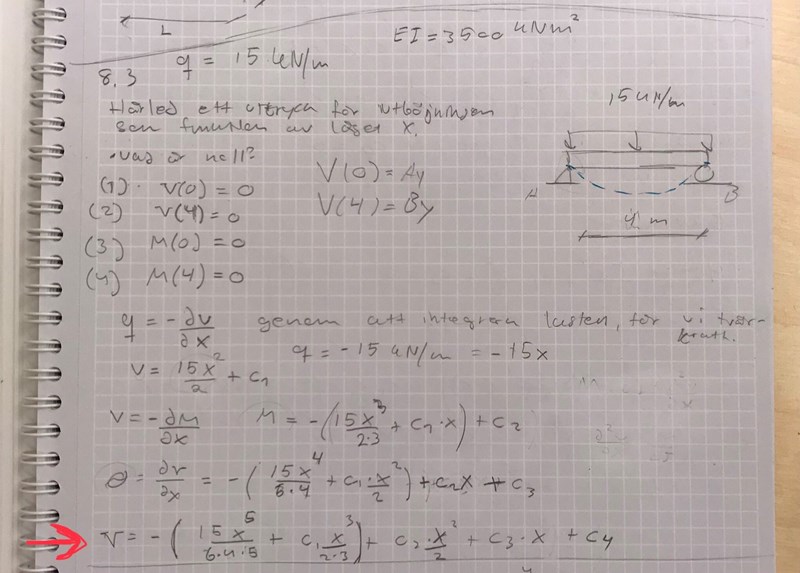 L
EI = 3500 kNm²
8,3 q = 15 kN/m
Härled ett uttryck för utböjningen
som funktion av läget x.
15 kN/m
• vad är noll?
(1) • v(0) = 0 V(0) = Ay
(2) v(4) = 0 V(4) = By
(3) M(0) = 0
(4) M(4) = 0
A B
4 m
q = -∂V/∂x genom att integrera lasten, får vi tvär-
kraft.
q = -15 kN/m = -15x
V = 15x²/2 + C₁
V = -∂M/∂x M = -(15x³/2·3 + C₁·x) + C₂
θ = ∂v/∂x = -(15x⁴/6·4 + C₁·x²/2) + C₂x + C₃
v = -(15x⁵/6·4·5 + C₁x³/2·3) + C₂·x²/2 + C₃·x + C₄